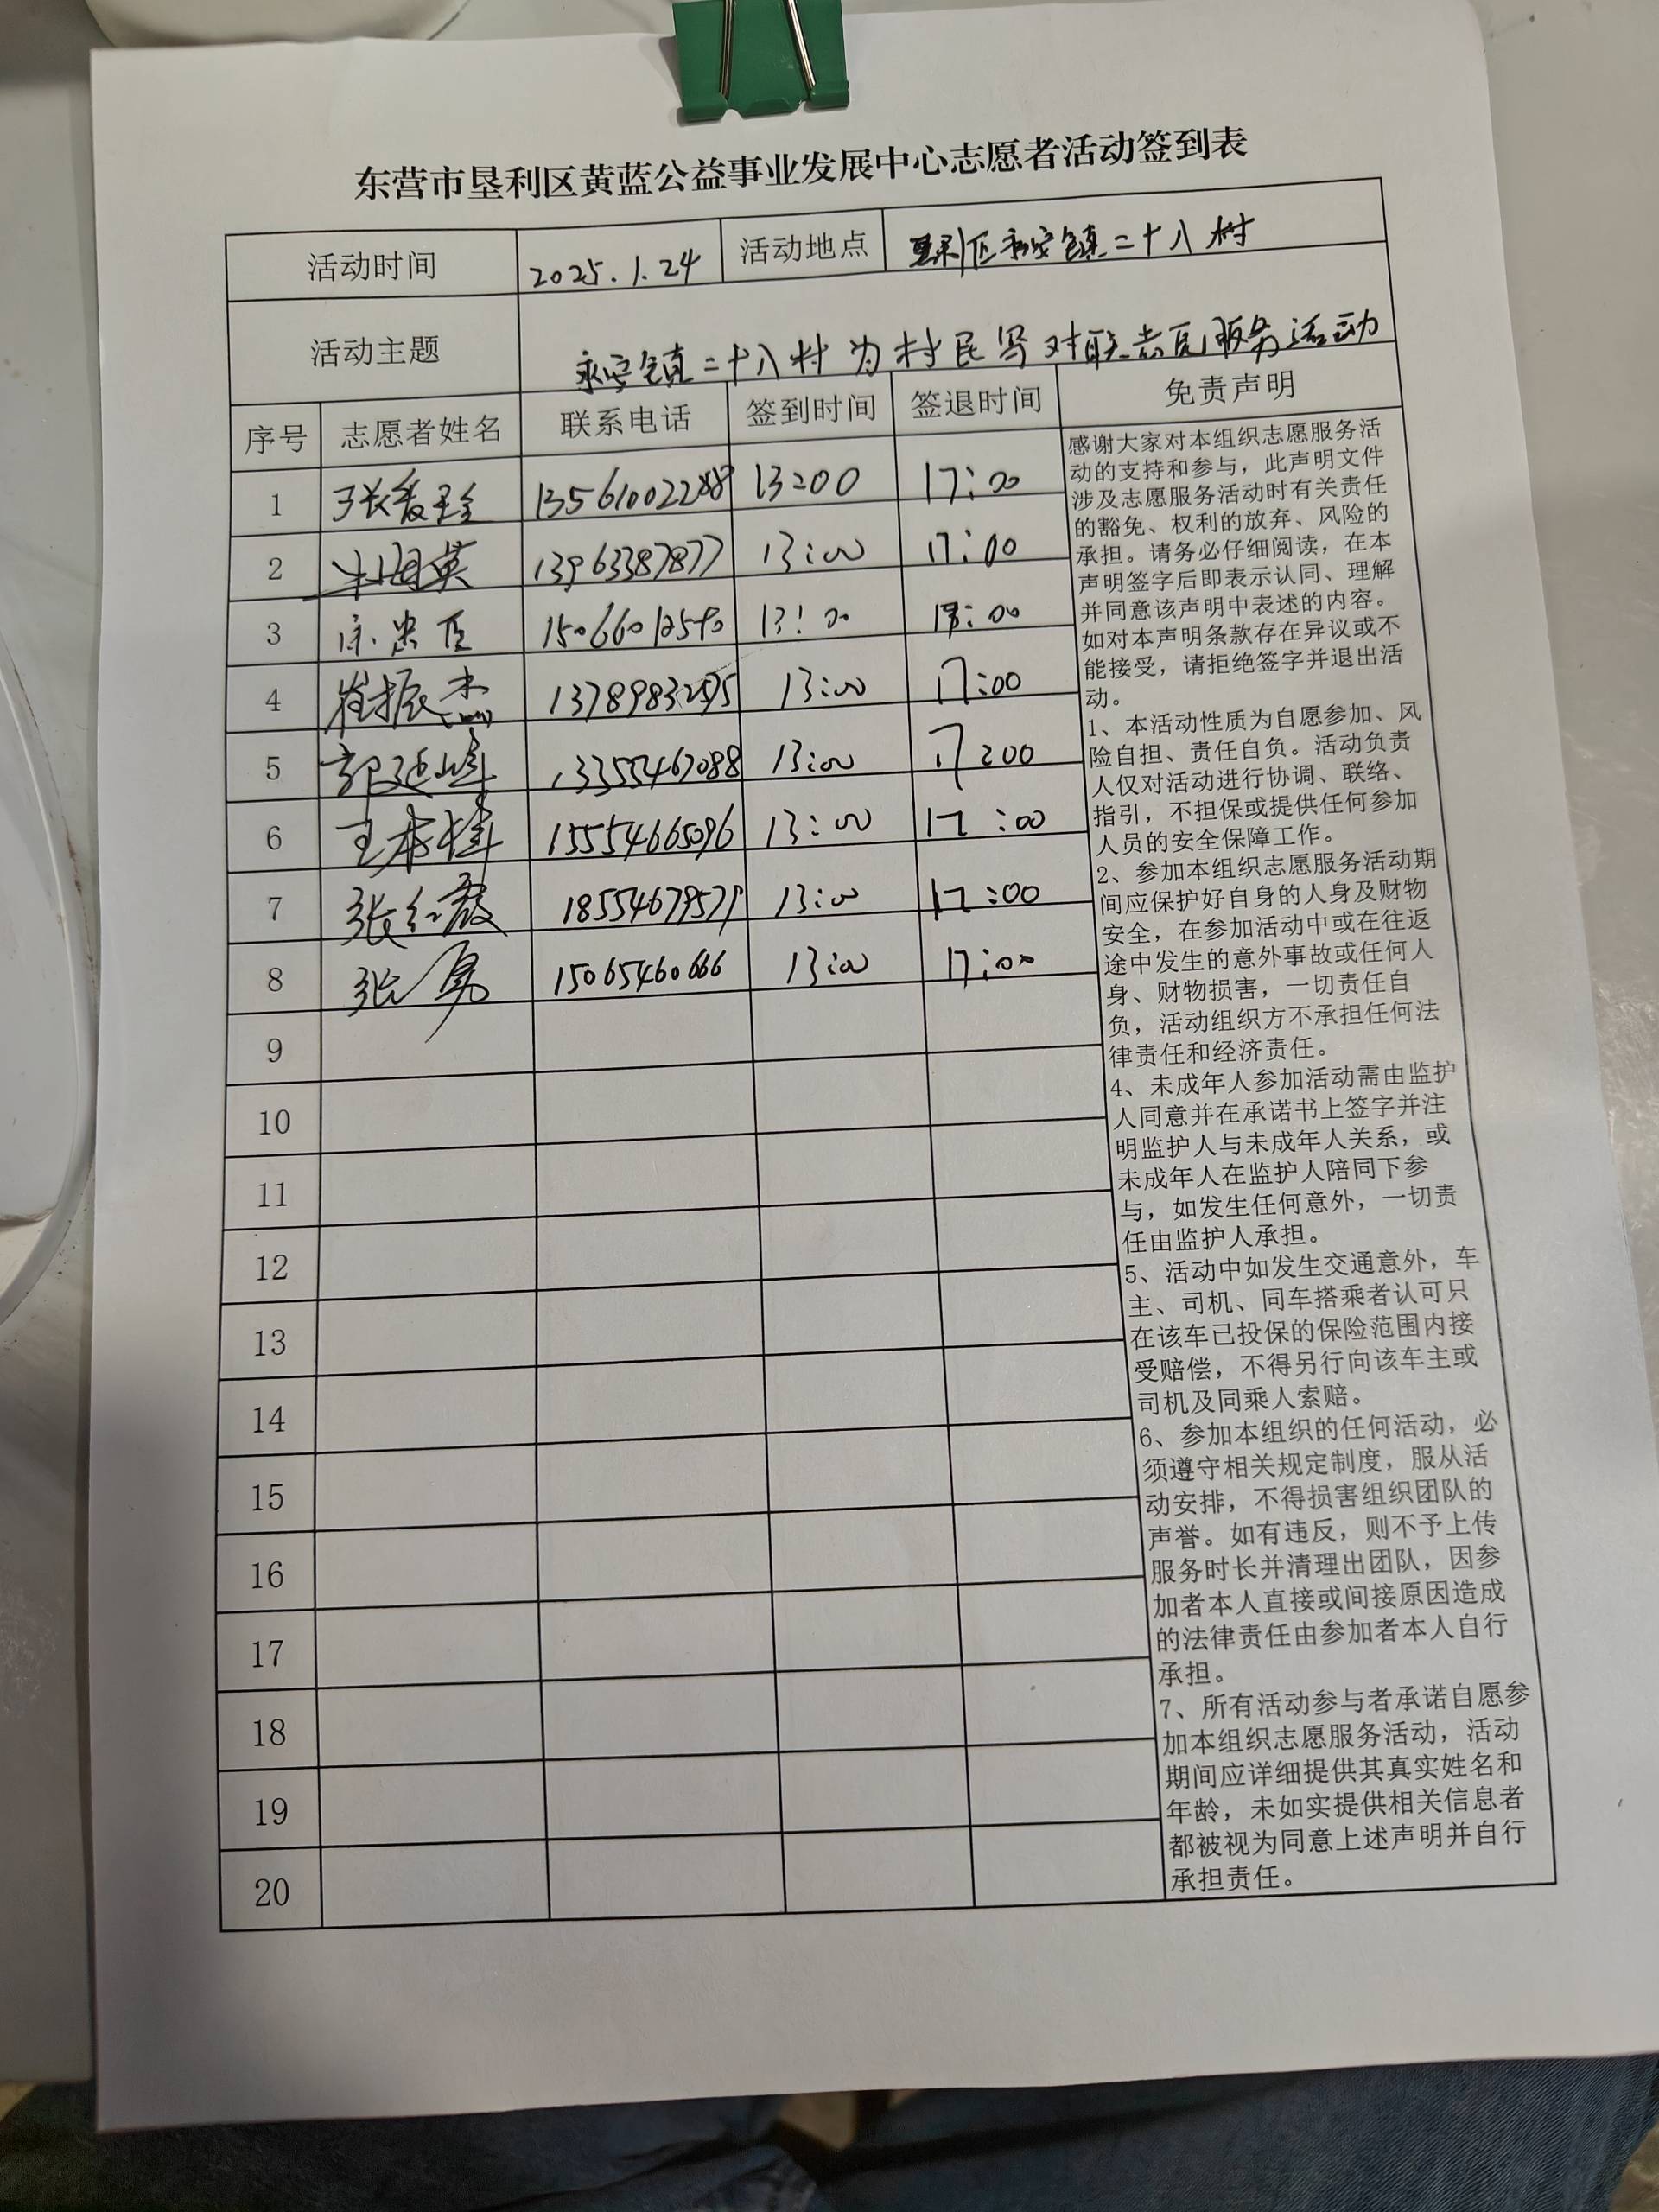 东营市垦利区黄蓝公益事业发展中心志愿者活动签到表
活动时间 2025.1.24 活动地点 垦利区永安镇二十八村
活动主题 永安镇二十八村为村民写对联志愿服务活动
序号 志愿者姓名 联系电话 签到时间 签退时间 免责声明
1 13:00 17:00
2 13963387877 13:00 17:00
3 13:00 17:00
4 崔振杰 13:00 17:00
5 郭延峰 13355467088 13:00 17:00
6 15554665096 13:00 17:00
7 张红霞 18554679579 13:00 17:00
8 张勇 15065460666 13:00 17:00
9
10
11
12
13
14
15
16
17
18
19
20
感谢大家对本组织志愿服务活
动的支持和参与，此声明文件
涉及志愿服务活动时有关责任
的豁免、权利的放弃、风险的
承担。请务必仔细阅读，在本
声明签字后即表示认同、理解
并同意该声明中表述的内容。
如对本声明条款存在异议或不
能接受，请拒绝签字并退出活
动。
1、本活动性质为自愿参加、风
险自担、责任自负。活动负责
人仅对活动进行协调、联络、
指引，不担保或提供任何参加
人员的安全保障工作。
2、参加本组织志愿服务活动期
间应保护好自身的人身及财物
安全，在参加活动中或在往返
途中发生的意外事故或任何人
身、财物损害，一切责任自
负，活动组织方不承担任何法
律责任和经济责任。
4、未成年人参加活动需由监护
人同意并在承诺书上签字并注
明监护人与未成年人关系，或
未成年人在监护人陪同下参
与，如发生任何意外，一切责
任由监护人承担。
5、活动中如发生交通意外，车
主、司机、同车搭乘者认可只
在该车已投保的保险范围内接
受赔偿，不得另行向该车主或
司机及同乘人索赔。
6、参加本组织的任何活动，必
须遵守相关规定制度，服从活
动安排，不得损害组织团队的
声誉。如有违反，则不予上传
服务时长并清理出团队，因参
加者本人直接或间接原因造成
的法律责任由参加者本人自行
承担。
7、所有活动参与者承诺自愿参
加本组织志愿服务活动，活动
期间应详细提供其真实姓名和
年龄，未如实提供相关信息者
都被视为同意上述声明并自行
承担责任。